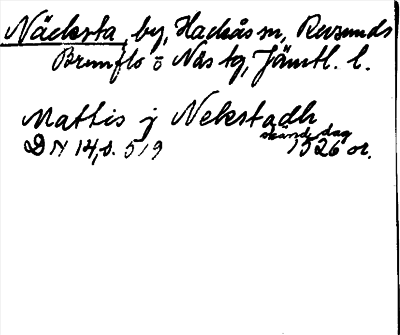 Näcksta by, Hackås sn, Revsunds
Brunflo o Näs tg, Jämtl. l.
Mattis j Nekstadh
okänd dag
DN 14, s. 519 1526 or.